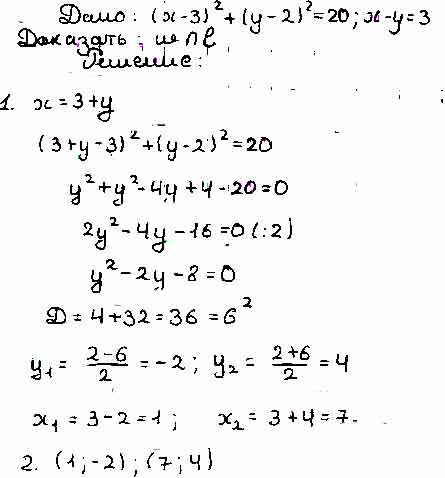 Дано: (x-3)²+(y-2)²=20; x-y=3
Доказать: ш ∩ l
Решение:
1. x=3+y
(3+y-3)²+(y-2)²=20
y²+y²-4y+4-20=0
2y²-4y-16=0 (:2)
y²-2y-8=0
D=4+32=36=6²
y₁= (2-6)/2 =-2; y₂= (2+6)/2 =4
x₁=3-2=1; x₂=3+4=7.
2. (1;-2); (7;4)